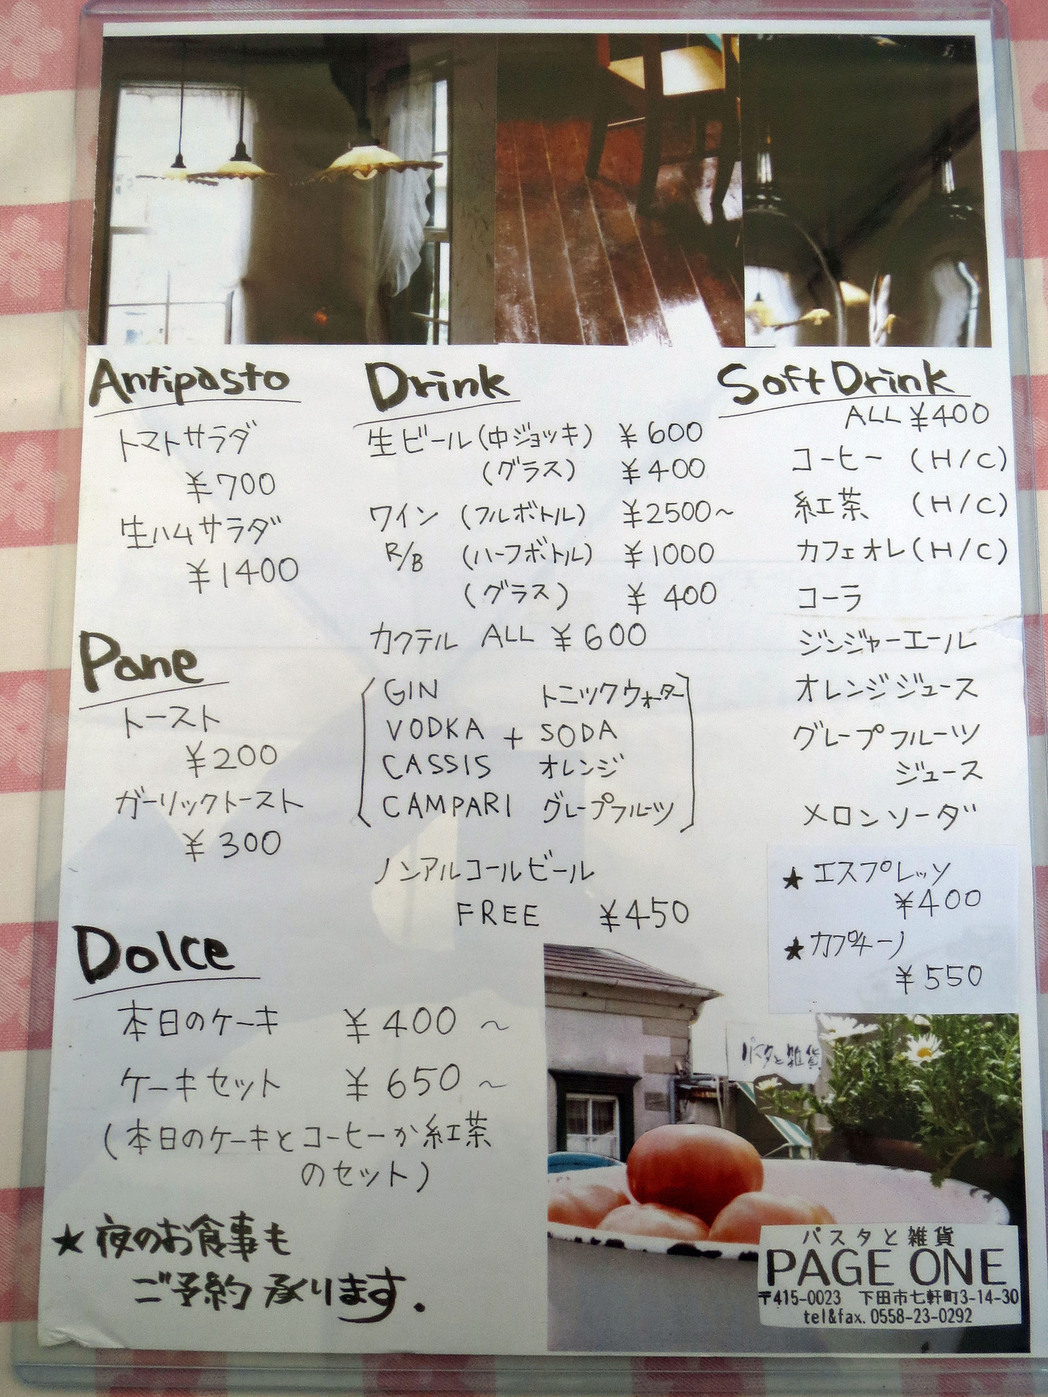 Antipasto
トマトサラダ
¥700
生ハムサラダ
¥1400
Pane
トースト
¥200
ガーリックトースト
¥300
Drink
生ビール(中ジョッキ) ¥600
(グラス) ¥400
ワイン (フルボトル) ¥2500~
R/B (ハーフボトル) ¥1000
(グラス) ¥400
カクテル ALL ¥600
GIN トニックウォーター
VODKA + SODA
CASSIS オレンジ
CAMPARI グレープフルーツ
ノンアルコールビール
FREE ¥450
Soft Drink
ALL ¥400
コーヒー (H/C)
紅茶 (H/C)
カフェオレ(H/C)
コーラ
ジンジャーエール
オレンジジュース
グレープフルーツ
ジュース
メロンソーダ
★ エスプレッソ
¥400
★ カプチーノ
¥550
Dolce
本日のケーキ ¥400 ~
ケーキセット ¥650 ~
(本日のケーキとコーヒーか紅茶
のセット)
★ 夜のお食事も
ご予約承ります.
パスタと雑貨
パスタと雑貨
PAGE ONE
〒415-0023 下田市七軒町3-14-30
tel&fax. 0558-23-0292